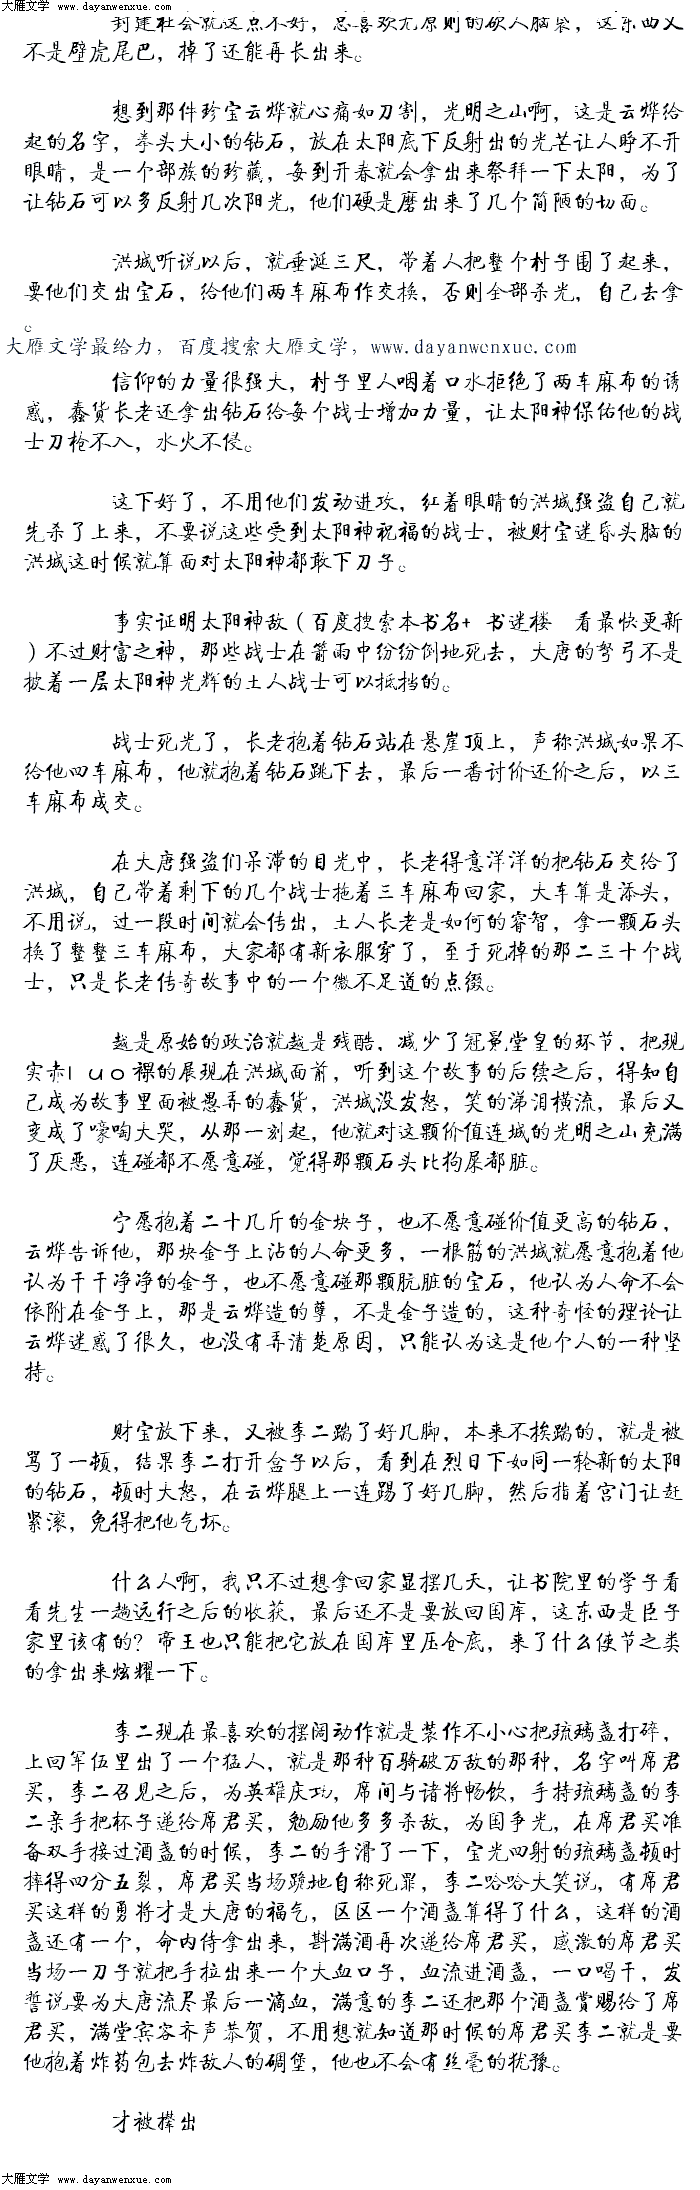 大雁文学 www.dayanwenxue.com
封建社会就这点不好，总喜欢无原则的砍人脑袋，这东西又
不是壁虎尾巴，掉了还能再长出来。
想到那件珍宝云烨就心痛如刀割，光明之山啊，这是云烨给
起的名字，拳头大小的钻石，放在太阳底下反射出的光芒让人睁不开
眼睛，是一个部族的珍藏，每到开春就会拿出来祭拜一下太阳，为了
让钻石可以多反射几次阳光，他们硬是磨出来了几个简陋的切面。
洪城听说以后，就垂涎三尺，带着人把整个村子围了起来，
要他们交出宝石，给他们两车麻布作交换，否则全部杀光，自己去拿
。
大雁文学最给力，百度搜索大雁文学，www.dayanwenxue.com
信仰的力量很强大，村子里人咽着口水拒绝了两车麻布的诱
惑，蠢货长老还拿出钻石给每个战士增加力量，让太阳神保佑他的战
士刀枪不入，水火不侵。
这下好了，不用他们发动进攻，红着眼睛的洪城强盗自己就
先杀了上来，不要说这些受到太阳神祝福的战士，被财宝迷昏头脑的
洪城这时候就算面对太阳神都敢下刀子。
事实证明太阳神敌（百度搜索本书名+ 书迷楼 看最快更新
）不过财富之神，那些战士在箭雨中纷纷倒地死去，大唐的弩弓不是
披着一层太阳神光辉的土人战士可以抵挡的。
战士死光了，长老抱着钻石站在悬崖顶上，声称洪城如果不
给他四车麻布，他就抱着钻石跳下去，最后一番讨价还价之后，以三
车麻布成交。
在大唐强盗们呆滞的目光中，长老得意洋洋的把钻石交给了
洪城，自己带着剩下的几个战士拖着三车麻布回家，大车算是添头，
不用说，过一段时间就会传出，土人长老是如何的睿智，拿一颗石头
换了整整三车麻布，大家都有新衣服穿了，至于死掉的那二三十个战
士，只是长老传奇故事中的一个微不足道的点缀。
越是原始的政治就越是残酷，减少了冠冕堂皇的环节，把现
实赤l uo裸的展现在洪城面前，听到这个故事的后续之后，得知自
己成为故事里面被愚弄的蠢货，洪城没发怒，笑的涕泪横流，最后又
变成了嚎啕大哭，从那一刻起，他就对这颗价值连城的光明之山充满
了厌恶，连碰都不愿意碰，觉得那颗石头比狗屎都脏。
宁愿抱着二十几斤的金块子，也不愿意碰价值更高的钻石，
云烨告诉他，那块金子上沾的人命更多，一根筋的洪城就愿意抱着他
认为干干净净的金子，也不愿意碰那颗肮脏的宝石，他认为人命不会
依附在金子上，那是云烨造的孽，不是金子造的，这种奇怪的理论让
云烨迷惑了很久，也没有弄清楚原因，只能认为这是他个人的一种坚
持。
财宝放下来，又被李二踹了好几脚，本来不挨踹的，就是被
骂了一顿，结果李二打开盒子以后，看到在烈日下如同一轮新的太阳
的钻石，顿时大怒，在云烨腿上一连踢了好几脚，然后指着宫门让赶
紧滚，免得把他气坏。
什么人啊，我只不过想拿回家显摆几天，让书院里的学子看
看先生一趟远行之后的收获，最后还不是要放回国库，这东西是臣子
家里该有的？帝王也只能把它放在国库里压仓底，来了什么使节之类
的拿出来炫耀一下。
李二现在最喜欢的摆阔动作就是装作不小心把琉璃盏打碎，
上回军伍里出了一个猛人，就是那种百骑破万敌的那种，名字叫席君
买，李二召见之后，为英雄庆功，席间与诸将畅饮，手持琉璃盏的李
二亲手把杯子递给席君买，勉励他多多杀敌，为国争光，在席君买准
备双手接过酒盏的时候，李二的手滑了一下，宝光四射的琉璃盏顿时
摔得四分五裂，席君买当场跪地自称死罪，李二哈哈大笑说，有席君
买这样的勇将才是大唐的福气，区区一个酒盏算得了什么，这样的酒
盏还有一个，命内侍拿出来，斟满酒再次递给席君买，感激的席君买
当场一刀子就把手拉出来一个大血口子，血流进酒盏，一口喝干，发
誓说要为大唐流尽最后一滴血，满意的李二还把那个酒盏赏赐给了席
君买，满堂宾客齐声恭贺，不用想就知道那时候的席君买李二就是要
他抱着炸药包去炸敌人的碉堡，他也不会有丝毫的犹豫。
才被撵出
大雁文学 www.dayanwenxue.com